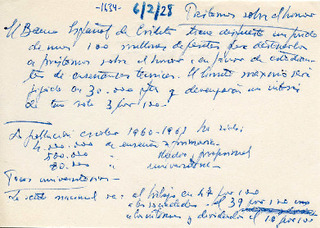 -1684-
6/2/28
Préstamos sobre el honor
El Banco Español de Crédito tiene dispuesto un fondo
de unos 100 millones de pesetas para destinarlo
a préstamos sobre el honor a favor de estudian-
tes de enseñanzas técnicas. El límite máximo será
fijado en 30.000 ptas y devengarán un interés
de tan solo 3 por 100.
La población escolar 1960-1961 ha sido:
4.000.000 de enseñanza primaria
500.000 " " media, profesional
80.000 " universitarios
Tasas universitarias
La renta nacional va: al trabajo en 47 por 100
a las sociedades el 39 por 100
y dividendos el 14 por 100